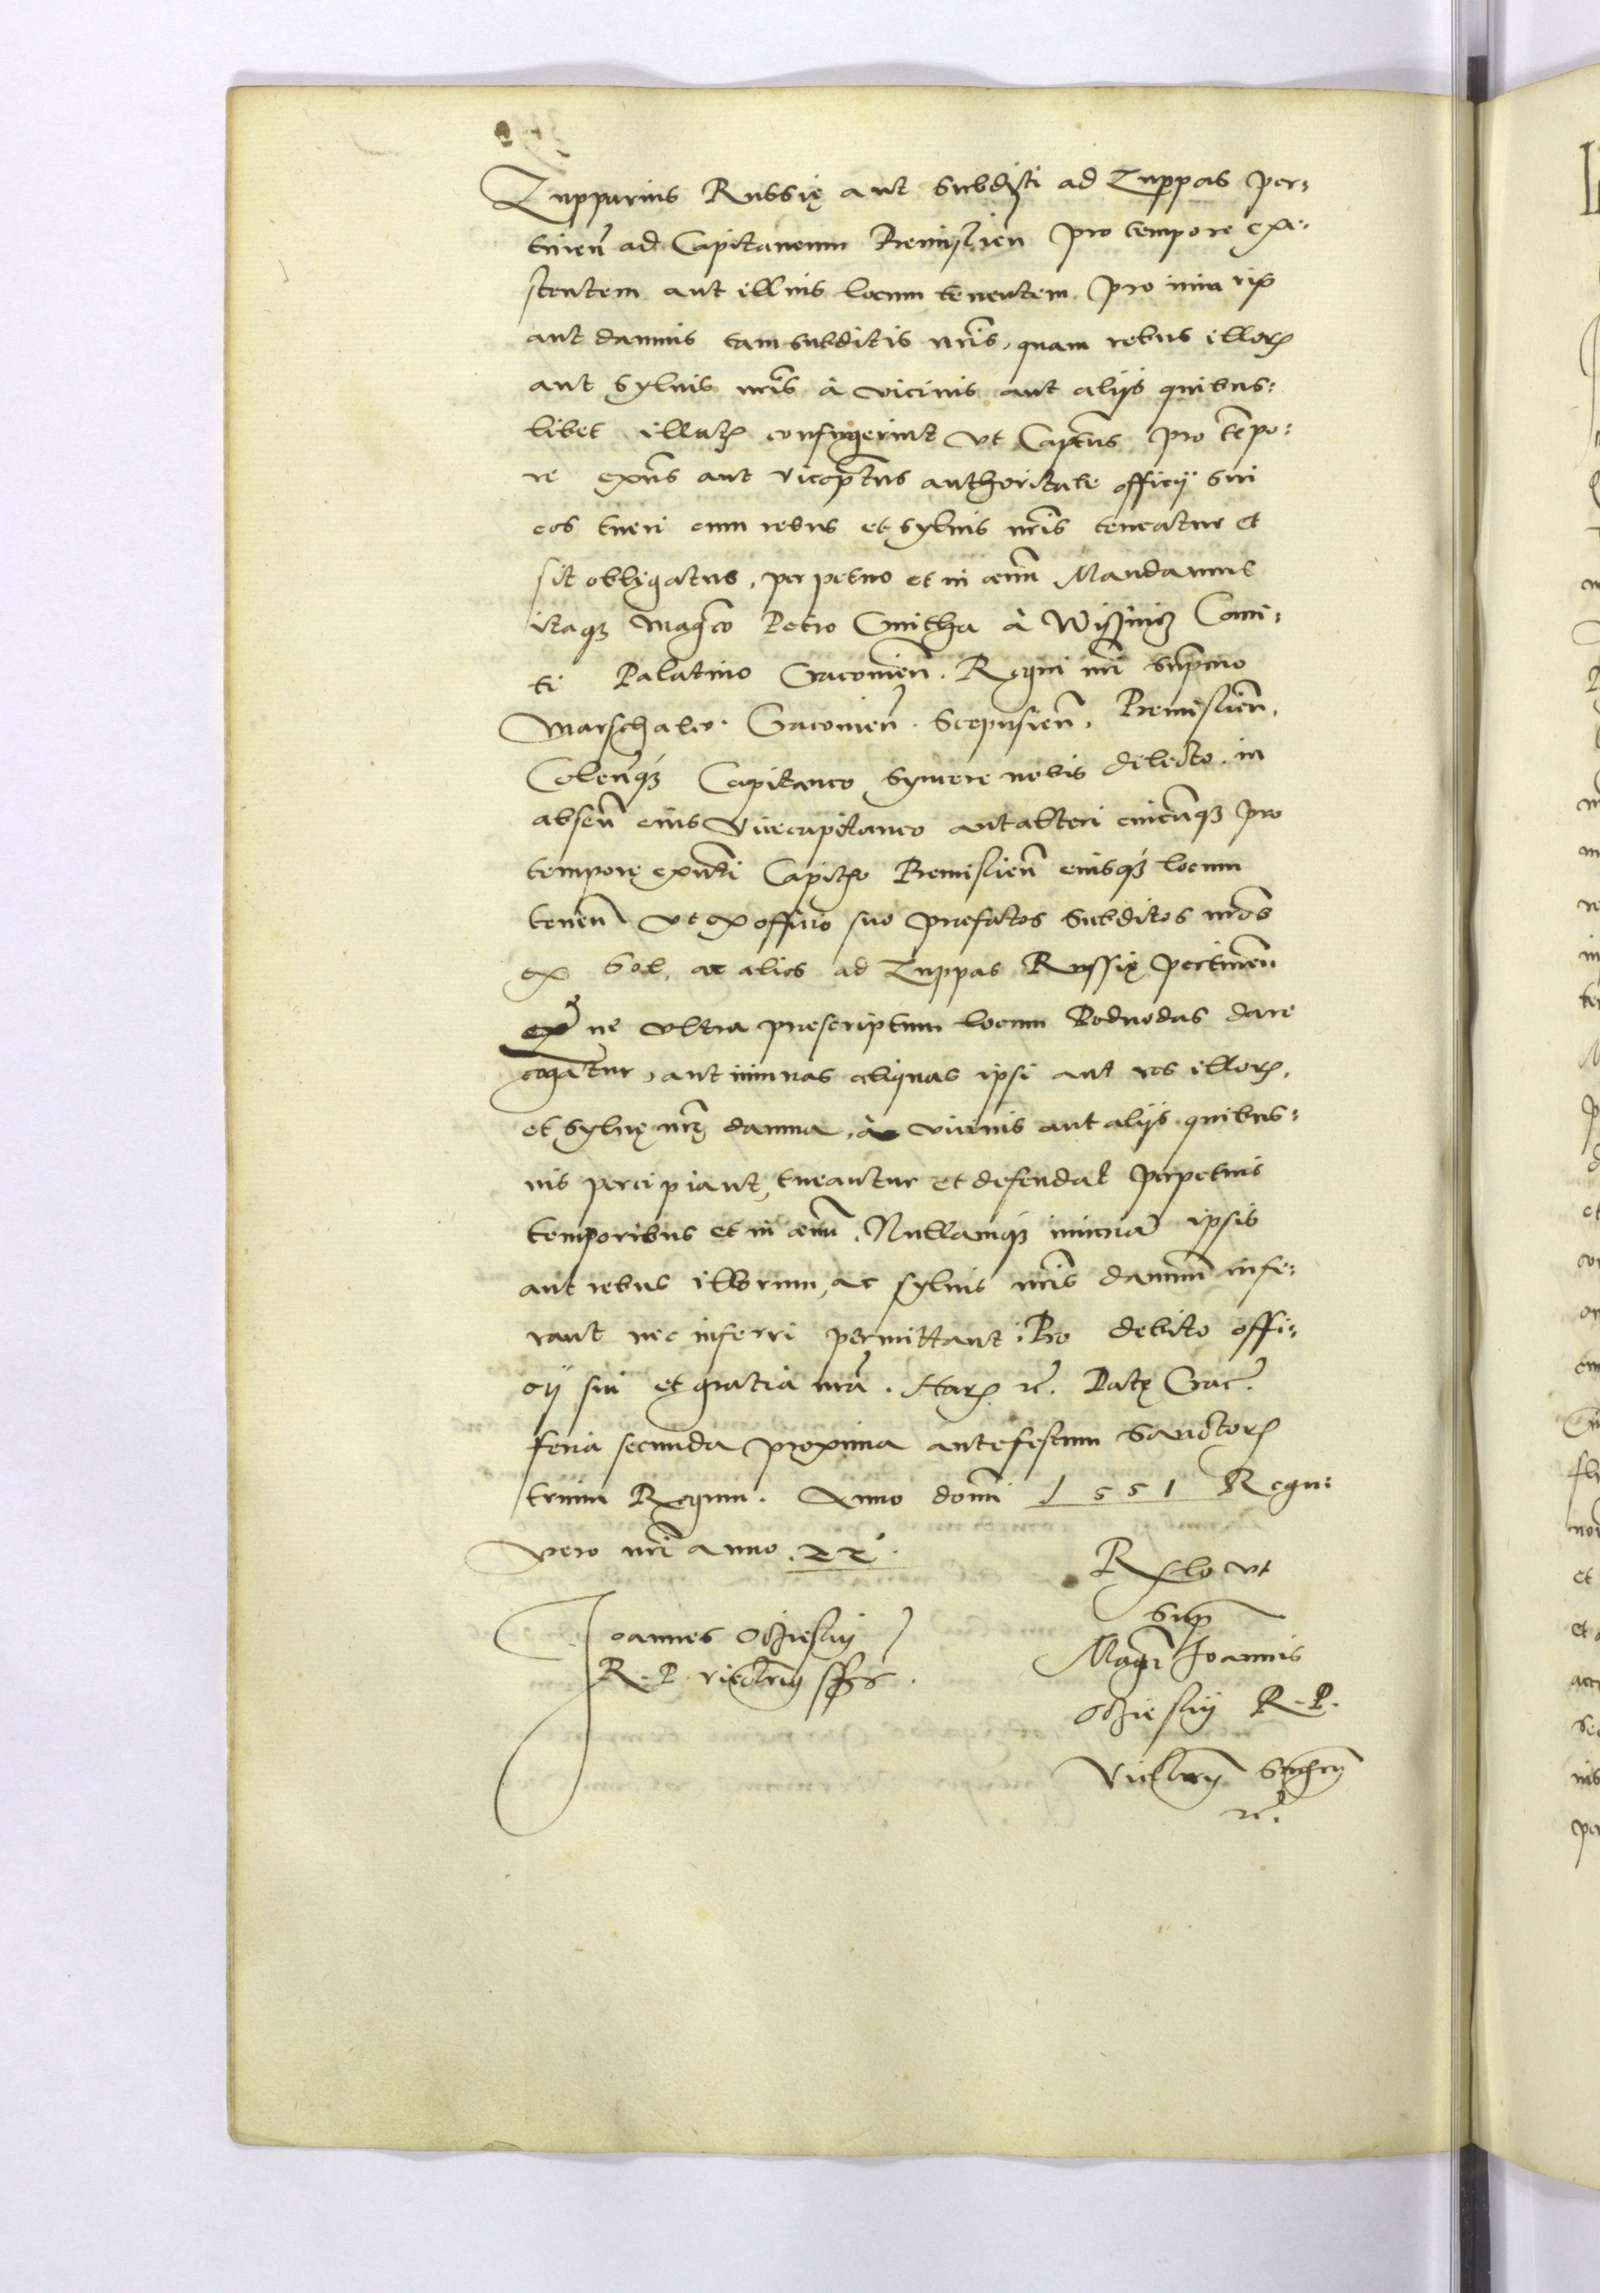 Zupparius Russię aut subditi ad Zuppas per:
tinen̄ ad Capitaneum Premislien̄ pro tempore exi:
stentem aut illius locum tenentem, pro iniurijs
aut damnis tam subditis nr̄is, quam rebus illorꝫ
aut syluis nr̄is à vicinis aut alijs quibus:
libet illatꝫ confugerint vt Captn̄s pro tēpo:
re exn̄s aut vicecaptn̄s authoritate officij sui
eos tueri cum rebus et syluis nr̄is teneatur et
sit obligatus, perpetuo et in aeuū Mandamus
itaqꝫ Magco Petro Cmitha à Wissnicz Comi:
ti Palatino Cracouien̄. Regni nr̄i supmo
Marschalco. Cracouien̄. Scepusien̄. Premislien̄.
Colen̄qꝫ Capitaneo syncere nobis dilecto. in
absen̄ eius Vicecapitaneo aut alteri cuicūqꝫ pro
tempore exn̄ti Capitꝫ Premislien̄ eiusqꝫ locum
tenen̄ vt ex officio suo prefatos subditos nr̄os
ex Sol. ac alios ad Zuppas Russię pertinen̄
ne vltra prescriptum locum Podwodas dare
cogātur, aut iniurias aliquas ipsi aut res illorꝫ.
et syluę nr̄ę damna, à vicinis aut alijs quibus:
uis percipiant, tueantur et defendat perpetuis
temporibus et in aeuū. Nullamqꝫ iniuriā ipsis
aut rebus illorum, ac syluis nr̄is damnū infe:
rant nec inferri permittant. Pro debito offi:
cij sui et gratia nr̄a. Harꝫ etc. Datę Crac.
feria secunda proxima ante festum Sanctorꝫ
trium Regum. Anno domī 1551 Regn:
vero nr̄i anno. 22.
Relo vt
sup
Joannes Ocziesky
R. P. vicecancrius sst.
Magci Joannis
Ocziesky R. P.
Vicecancrij
etc.